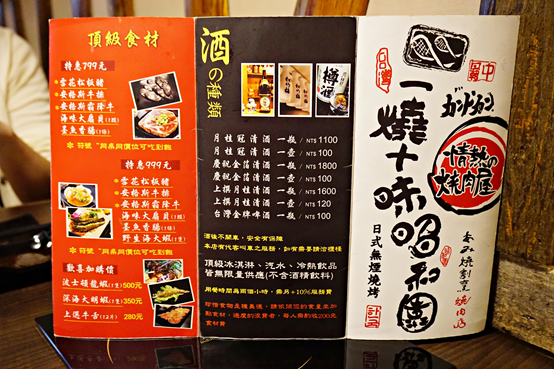 頂級食材
特惠799元
※雪花松板豬
※安格斯牛排
※安格斯霜降牛
海味大扇貝(1顆)
墨魚香腸(1條)
※ 符號"同桌同價位可吃到飽
特惠999元
※雪花松板豬
※安格斯牛排
※安格斯霜降牛
海味大扇貝(1顆)
墨魚香腸(1條)
野生海大蝦(1隻)
※ 符號"同桌同價位可吃到飽
歡喜加購價
波士頓龍蝦(1隻)500元
深海大明蝦(1隻)350元
上選牛舌(12片) 280元
酒の種類
月桂冠清酒 一瓶/NT$1100
月桂冠清酒 一壺/NT$ 100
慶祝金箔清酒 一瓶/NT$1800
慶祝金箔清酒 一壺/NT$ 100
上撰月桂清酒 一瓶/NT$1600
上撰月桂清酒 一壺/NT$ 120
台灣金牌啤酒 一瓶/NT$ 100
酒後不開車,安全有保障
本店有代客叫車之服務,如有需要請洽櫃檯
頂級冰淇淋、汽水、冷熱飲品
皆無限量供應(不含酒精飲料)
用餐時間為兩個小時,需另+10%服務費
台灣
一燒十味昭和園
日式無煙燒烤
情熱の
焼肉屋